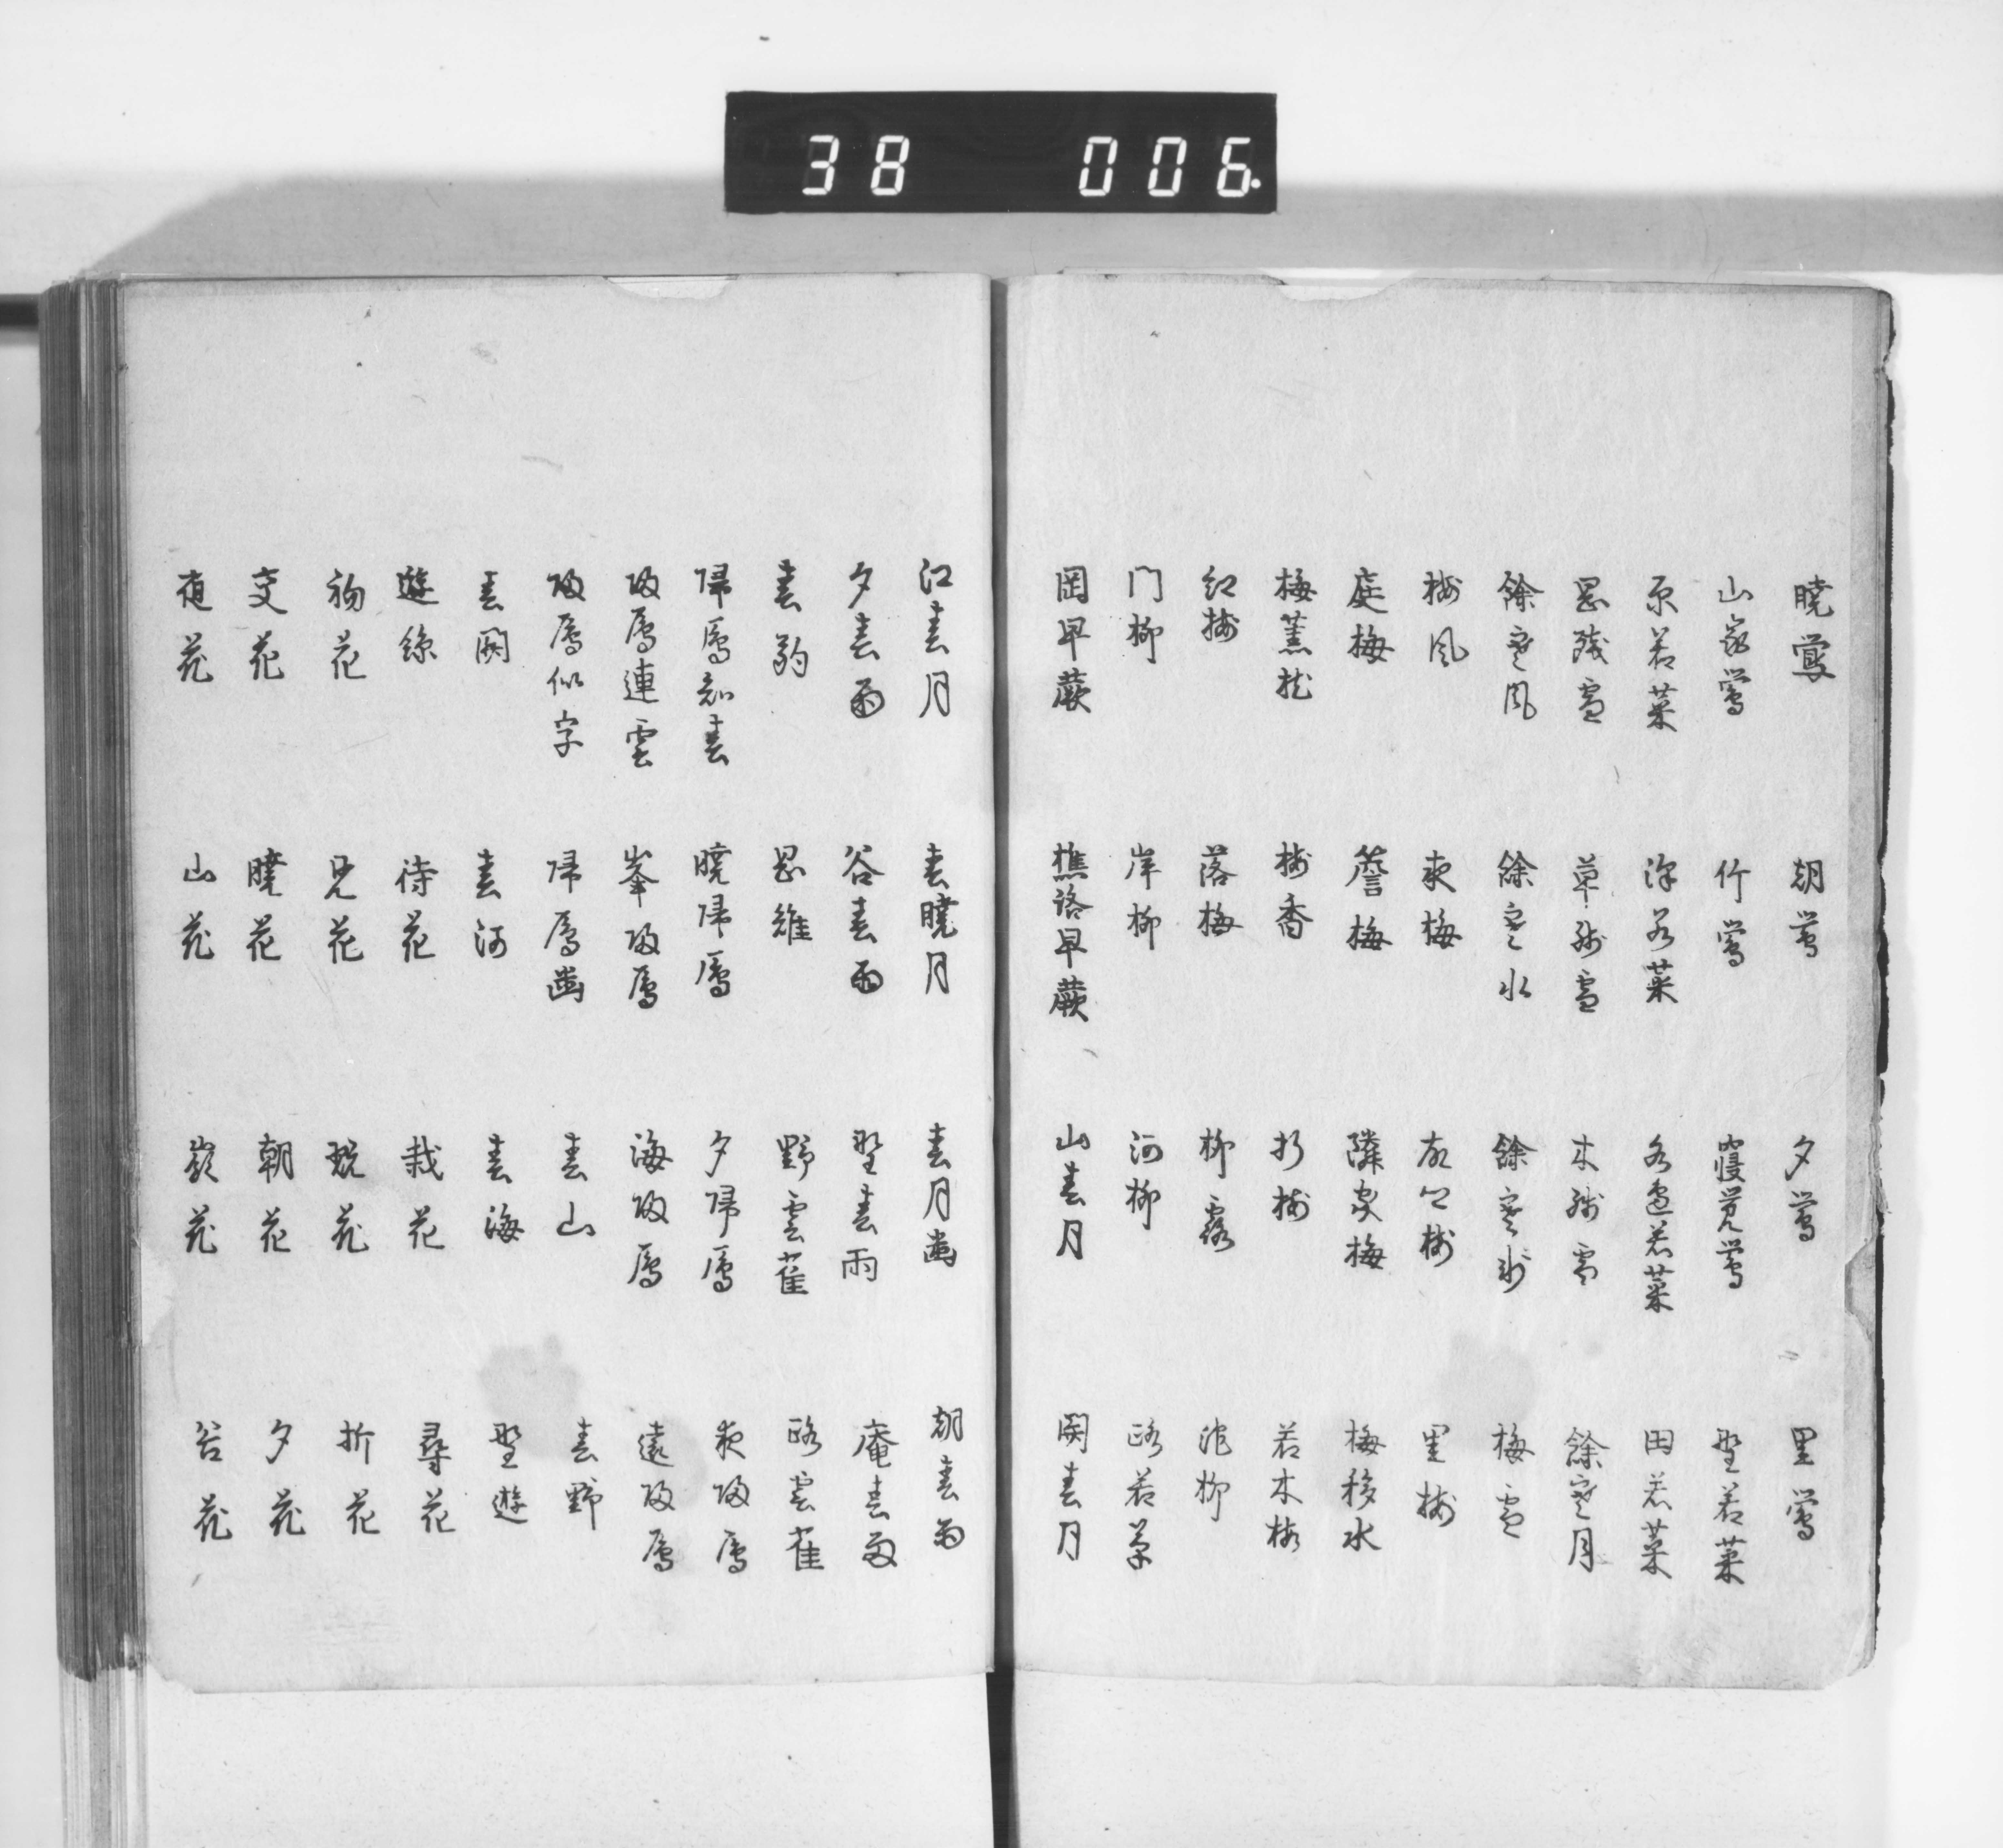 38 006.
暁鶯 朝鶯 夕鶯 里鶯
山家鶯 竹鶯 寝覚鶯 野若菜
原若菜 沢若菜 水辺若菜 田若菜
残雪 草残雪 木残雪 餘寒月
餘寒風 餘寒氷 餘寒 梅雪
梅風 夜梅 梅 里梅
庭梅 簷梅 隣家梅 梅移水
梅薫枕 梅香 折梅 若木梅
紅梅 落梅 柳露 池柳
门柳 岸柳 河柳 路若草
岡早蕨 樵路早蕨 山春月 関春月
江春月 春暁月 春月幽 朝春雨
夕春雨 谷春雨 野春雨 庵春雨
春駒 雉 野雲雀 路雲雀
帰鴈知春 暁帰鴈 夕帰鴈 夜帰鴈
帰鴈連雲 峯帰鴈 海帰鴈 遠帰鴈
帰鴈似字 帰鴈幽 春山 春野
春関 春河 春海 野遊
遊絲 待花 栽花 尋花
初花 見花 翫花 折花
交花 暁花 朝花 夕花
夜花 山花 嶺花 谷花